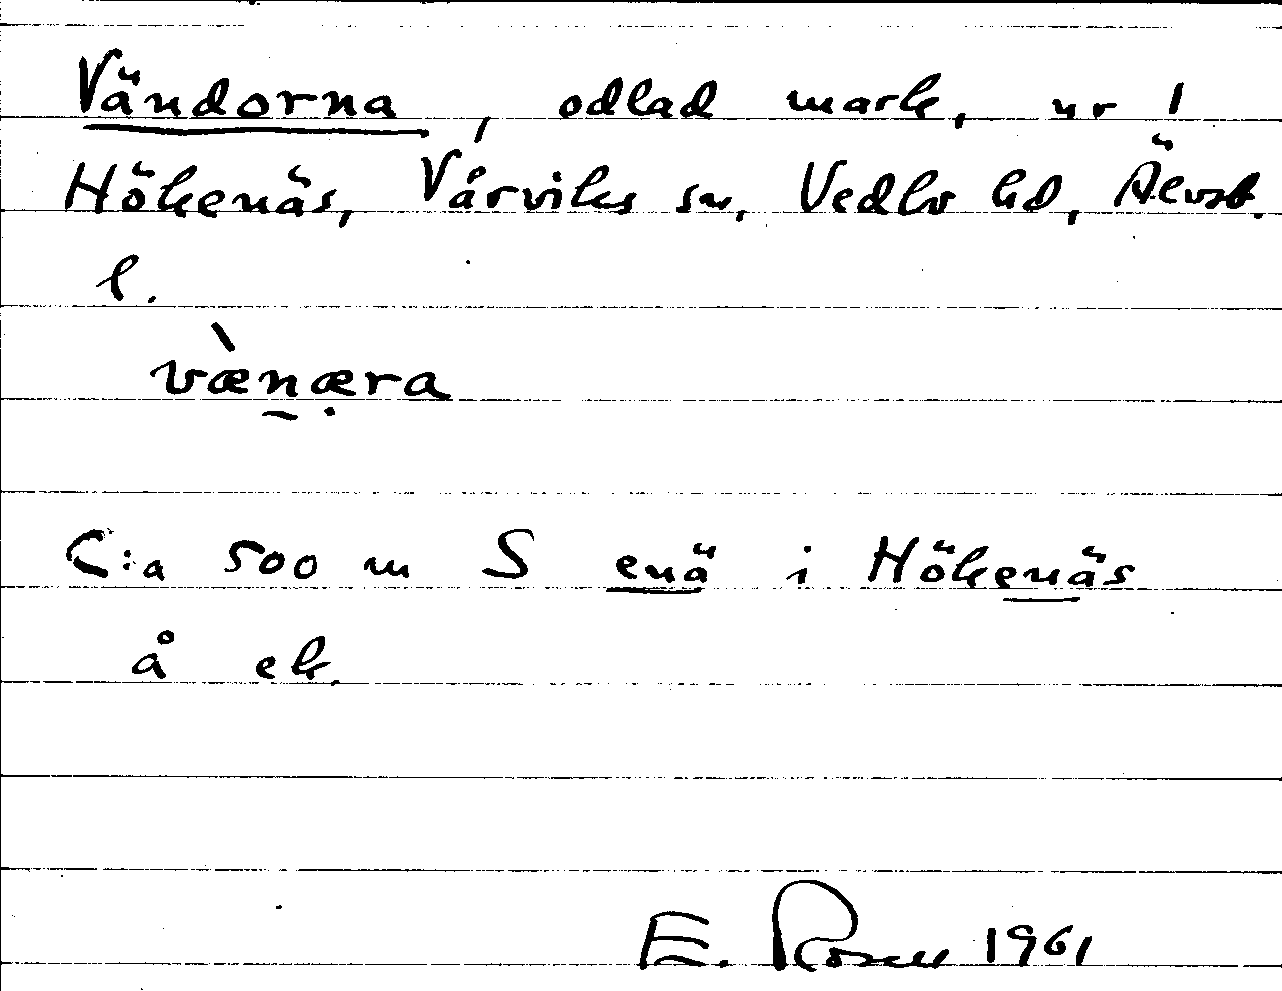 Vändorna, odlad mark, nr 1
Hökenäs, Vårviks sn, Vedbo hd, Älvsb.
l.
vænæra
C:a 500 m S enä i Hökenäs
å ek.
E. Rosell 1961